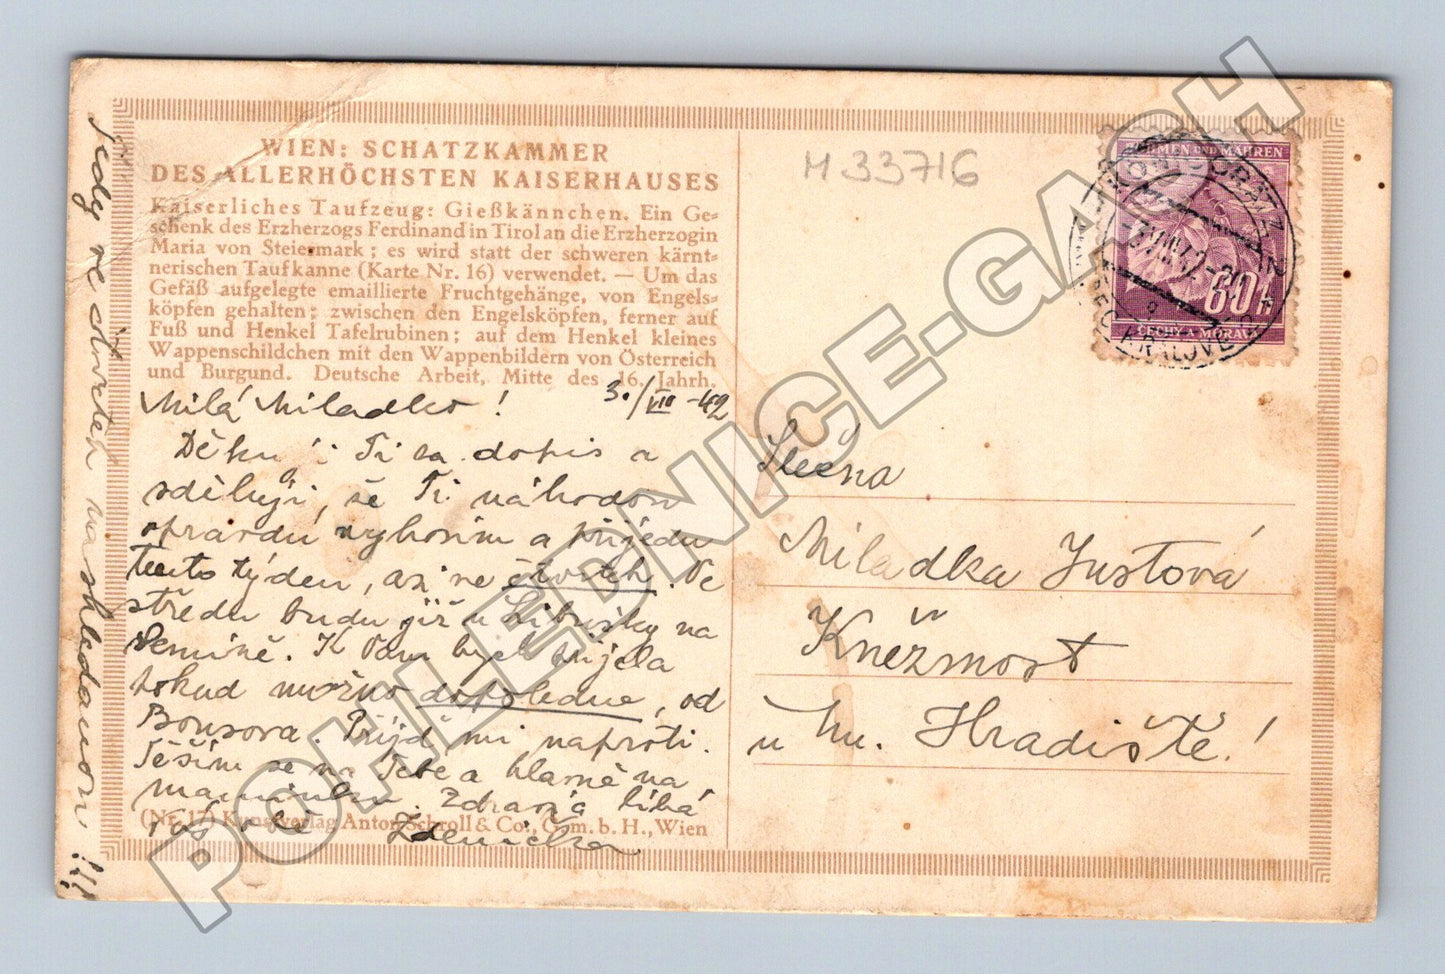 WIEN: SCHATZKAMMER
DES ALLERHÖCHSTEN KAISERHAUSES
Kaiserliches Taufzeug: Gießkännchen. Ein Ge=
schenk des Erzherzogs Ferdinand in Tirol an die Erzherzogin
Maria von Steiermark; es wird statt der schweren kärnt=
nerischen Taufkanne (Karte Nr. 16) verwendet. — Um das
Gefäß aufgelegte emaillierte Fruchtgehänge, von Engels=
köpfen gehalten; zwischen den Engelsköpfen, ferner auf
Fuß und Henkel Tafelrubinen; auf dem Henkel kleines
Wappenschildchen mit den Wappenbildern von Österreich
und Burgund. Deutsche Arbeit, Mitte des 16. Jahrh.
Milá Miladko! 3./VIII -42
Děkuji Ti za dopis a
sděluji, že Ti náhodou
opravdu vyhovím a přijedu
tento týden, asi ve čtvrtek. Ve
středu budu již u Libušky na
Semině. K Vám bych přijela
pokud možno dopoledne, od
Bousova. Přijď mi naproti.
Těším se na Tebe a hlavně na
maminku. Zdraví a líbá
Vás vše Zdenička
(Nr. 17) Kunstverlag Anton Schroll & Co., G. m. b. H., Wien
Tedy ve čtvrtek na shledanou!!!
M 33716
BÖHMEN UND MÄHREN
60 h
ČECHY A MORAVA
KÖNIGGRÄTZ 2
-3.VIII.42-20
HRADEC KRÁLOVÉ 2
Slečna
Miladka Justová
Kněžmost
u Mn. Hradiště!
POHLEDNICE-GACH